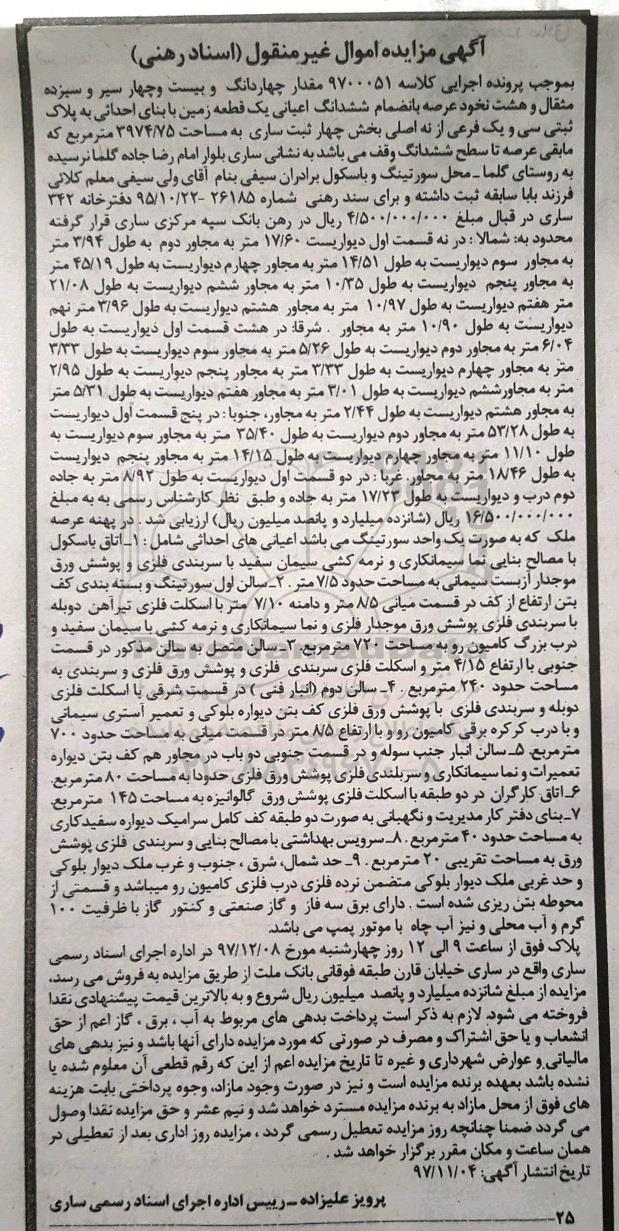 آگهی مزایده اموال غیرمنقول (اسناد رهنی)
بموجب پرونده اجرایی کلاسه ۹۷۰۰۰۵۱ مقدار چهاردانگ و بیست وچهار سیر و سیزده
مثقال و هشت نخود عرصه بانضمام ششدانگ اعیانی یک قطعه زمین با بنای احداثی به پلاک
ثبتی سی و یک فرعی از نه اصلی بخش چهار ثبت ساری به مساحت ۳۹۷۴/۷۵ مترمربع که
مابقی عرصه تا سطح ششدانگ وقف می باشد به نشانی ساری بلوار امام رضا جاده گلما نرسیده
به روستای گلما - محل سورتینگ و باسکول برادران سیفی بنام آقای ولی سیفی معلم کلائی
فرزند بابا سابقه ثبت داشته و برای سند رهنی شماره ۲۶۱۸۵ -۹۵/۱۰/۲۲ دفترخانه ۳۴۲
ساری در قبال مبلغ ۴/۵۰۰/۰۰۰/۰۰۰ ریال در رهن بانک سپه مرکزی ساری قرار گرفته
محدود به: شمالا : در نه قسمت اول دیواریست ۱۷/۶۰ متر به مجاور دوم به طول ۳/۹۴ متر
به مجاور سوم دیواریست به طول ۱۴/۵۱ متر به مجاور چهارم دیواریست به طول ۴۵/۱۹ متر
به مجاور پنجم دیواریست به طول ۱۰/۳۵ متر به مجاور ششم دیواریست به طول ۲۱/۰۸
متر هفتم دیواریست به طول ۱۰/۹۷ متر به مجاور هشتم دیواریست به طول ۳/۹۶ متر نهم
دیواریست به طول ۱۰/۹۰ متر به مجاور . شرقا: در هشت قسمت اول دیواریست به طول
۶/۰۴ متر به مجاور دوم دیواریست به طول ۵/۲۶ متر به مجاور سوم دیواریست به طول ۳/۳۳
متر به مجاور چهارم دیواریست به طول ۳/۳۳ متر به مجاور پنجم دیواریست به طول ۲/۹۵
متر به مجاورششم دیواریست به طول ۳/۰۱ متر به مجاور هفتم دیواریست به طول ۵/۳۱ متر
به مجاور هشتم دیواریست به طول ۲/۴۴ متر به مجاور، جنوبا: در پنج قسمت اول دیواریست
به طول ۵۳/۲۸ متر به مجاور دوم دیواریست به طول ۳۵/۴۰ متر به مجاور سوم دیواریست به
طول ۱۱/۱۰ متر به مجاور چهارم دیواریست به طول ۱۴/۱۵ متر به مجاور پنجم دیواریست
به طول ۱۸/۴۶ متر به مجاور. غربا : در دو قسمت اول دیواریست به طول ۸/۹۲ متر به جاده
دوم درب و دیواریست به طول ۱۷/۲۳ متر به جاده و طبق نظر کارشناس رسمی به به مبلغ
۱۶/۵۰۰/۰۰۰/۰۰۰ ریال (شانزده میلیارد و پانصد میلیون ریال) ارزیابی شد . در پهنه عرصه
ملک که به صورت یک واحد سورتینگ می باشد اعیانی های احداثی شامل : ۱-اتاق باسکول
با مصالح بنایی نما سیمانکاری و نرمه کشی سیمان سفید با سربندی فلزی و پوشش ورق
موجدار آزبست سیمانی به مساحت حدود ۷/۵ متر . ۲- سالن اول سورتینگ و بسته بندی کف
بتن ارتفاع از کف در قسمت میانی ۸/۵ متر و دامنه ۷/۱۰ متر با اسکلت فلزی تیرآهن دوبله
با سربندی فلزی پوشش ورق موجدار فلزی و نما سیمانکاری و نرمه کشی با سیمان سفید و
درب بزرگ کامیون رو به مساحت ۷۲۰ مترمربع. ۳- سالن متصل به سالن مذکور در قسمت
جنوبی با ارتفاع ۴/۱۵ متر و اسکلت فلزی سربندی فلزی و پوشش ورق فلزی و سربندی به
مساحت حدود ۲۴۰ مترمربع . ۴- سالن دوم (انبار فنی ) در قسمت شرقی با اسکلت فلزی
دوبله و سربندی فلزی با پوشش ورق فلزی کف بتن دیواره بلوکی و تعمیر آستری سیمانی
و با درب کرکره برقی کامیون رو و با ارتفاع ۸/۵ متر در قسمت میانی به مساحت حدود ۷۰۰
مترمربع. ۵- سالن انبار جنب سوله و در قسمت جنوبی دو باب در مجاور هم کف بتن دیواره
تعمیرات و نما سیمانکاری و سربلندی فلزی پوشش ورق فلزی حدودا به مساحت ۸۰ مترمربع.
۶-اتاق کارگران در دو طبقه با اسکلت فلزی پوشش ورق گالوانیزه به مساحت ۱۴۵ مترمربع.
۷-بنای دفتر کار مدیریت و نگهبانی به صورت دو طبقه کف کامل سرامیک دیواره سفیدکاری
به مساحت حدود ۴۰ مترمربع . ۸-سرویس بهداشتی با مصالح بنایی و سربندی فلزی پوشش
ورق به مساحت تقریبی ۲۰ مترمربع . ۹- حد شمال، شرق ، جنوب و غرب ملک دیوار بلوکی
و حد غربی ملک دیوار بلوکی متضمن نرده فلزی درب فلزی کامیون رو میباشد و قسمتی از
محوطه بتن ریزی شده است . دارای برق سه فاز و گاز صنعتی و کنتور گاز با ظرفیت ۱۰۰
گرم و آب محلی و نیز آب چاه با موتور پمپ می باشد.
پلاک فوق از ساعت ۹ الی ۱۲ روز چهارشنبه مورخ ۹۷/۱۲/۰۸ در اداره اجرای اسناد رسمی
ساری واقع در ساری خیابان قارن طبقه فوقانی بانک ملت از طریق مزایده به فروش می رسد،
مزایده از مبلغ شانزده میلیارد و پانصد میلیون ریال شروع و به بالاترین قیمت پیشنهادی نقدا
فروخته می شود. لازم به ذکر است پرداخت بدهی های مربوط به آب ، برق ، گاز اعم از حق
انشعاب و یا حق اشتراک و مصرف در صورتی که مورد مزایده دارای آنها باشد و نیز بدهی های
مالیاتی و عوارض شهرداری و غیره تا تاریخ مزایده اعم از این که رقم قطعی آن معلوم شده یا
نشده باشد بعهده برنده مزایده است و نیز در صورت وجود مازاد، وجوه پرداختی بابت هزینه
های فوق از محل مازاد به برنده مزایده مسترد خواهد شد و نیم عشر و حق مزایده نقدا وصول
می گردد ضمنا چنانچه روز مزایده تعطیل رسمی گردد ، مزایده روز اداری بعد از تعطیلی در
همان ساعت و مکان مقرر برگزار خواهد شد .
تاریخ انتشار آگهی: ۹۷/۱۱/۰۴
پرویز علیزاده - رییس اداره اجرای اسناد رسمی ساری
۲۵